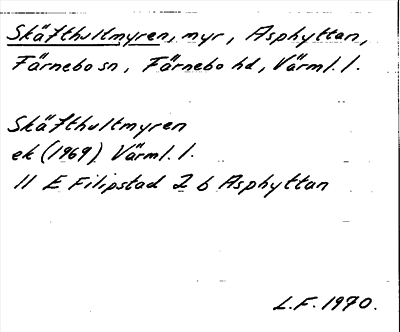 Skäfthultmyren, myr, Asphyttan,
Färnebo sn, Färnebo hd, Värml. l.
Skäfthultmyren
ek (1969) Värml. l.
11 E Filipstad 2 b Asphyttan
L.F. 1970.